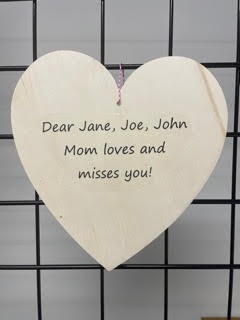 Dear Jane, Joe, John
Mom loves and
misses you!